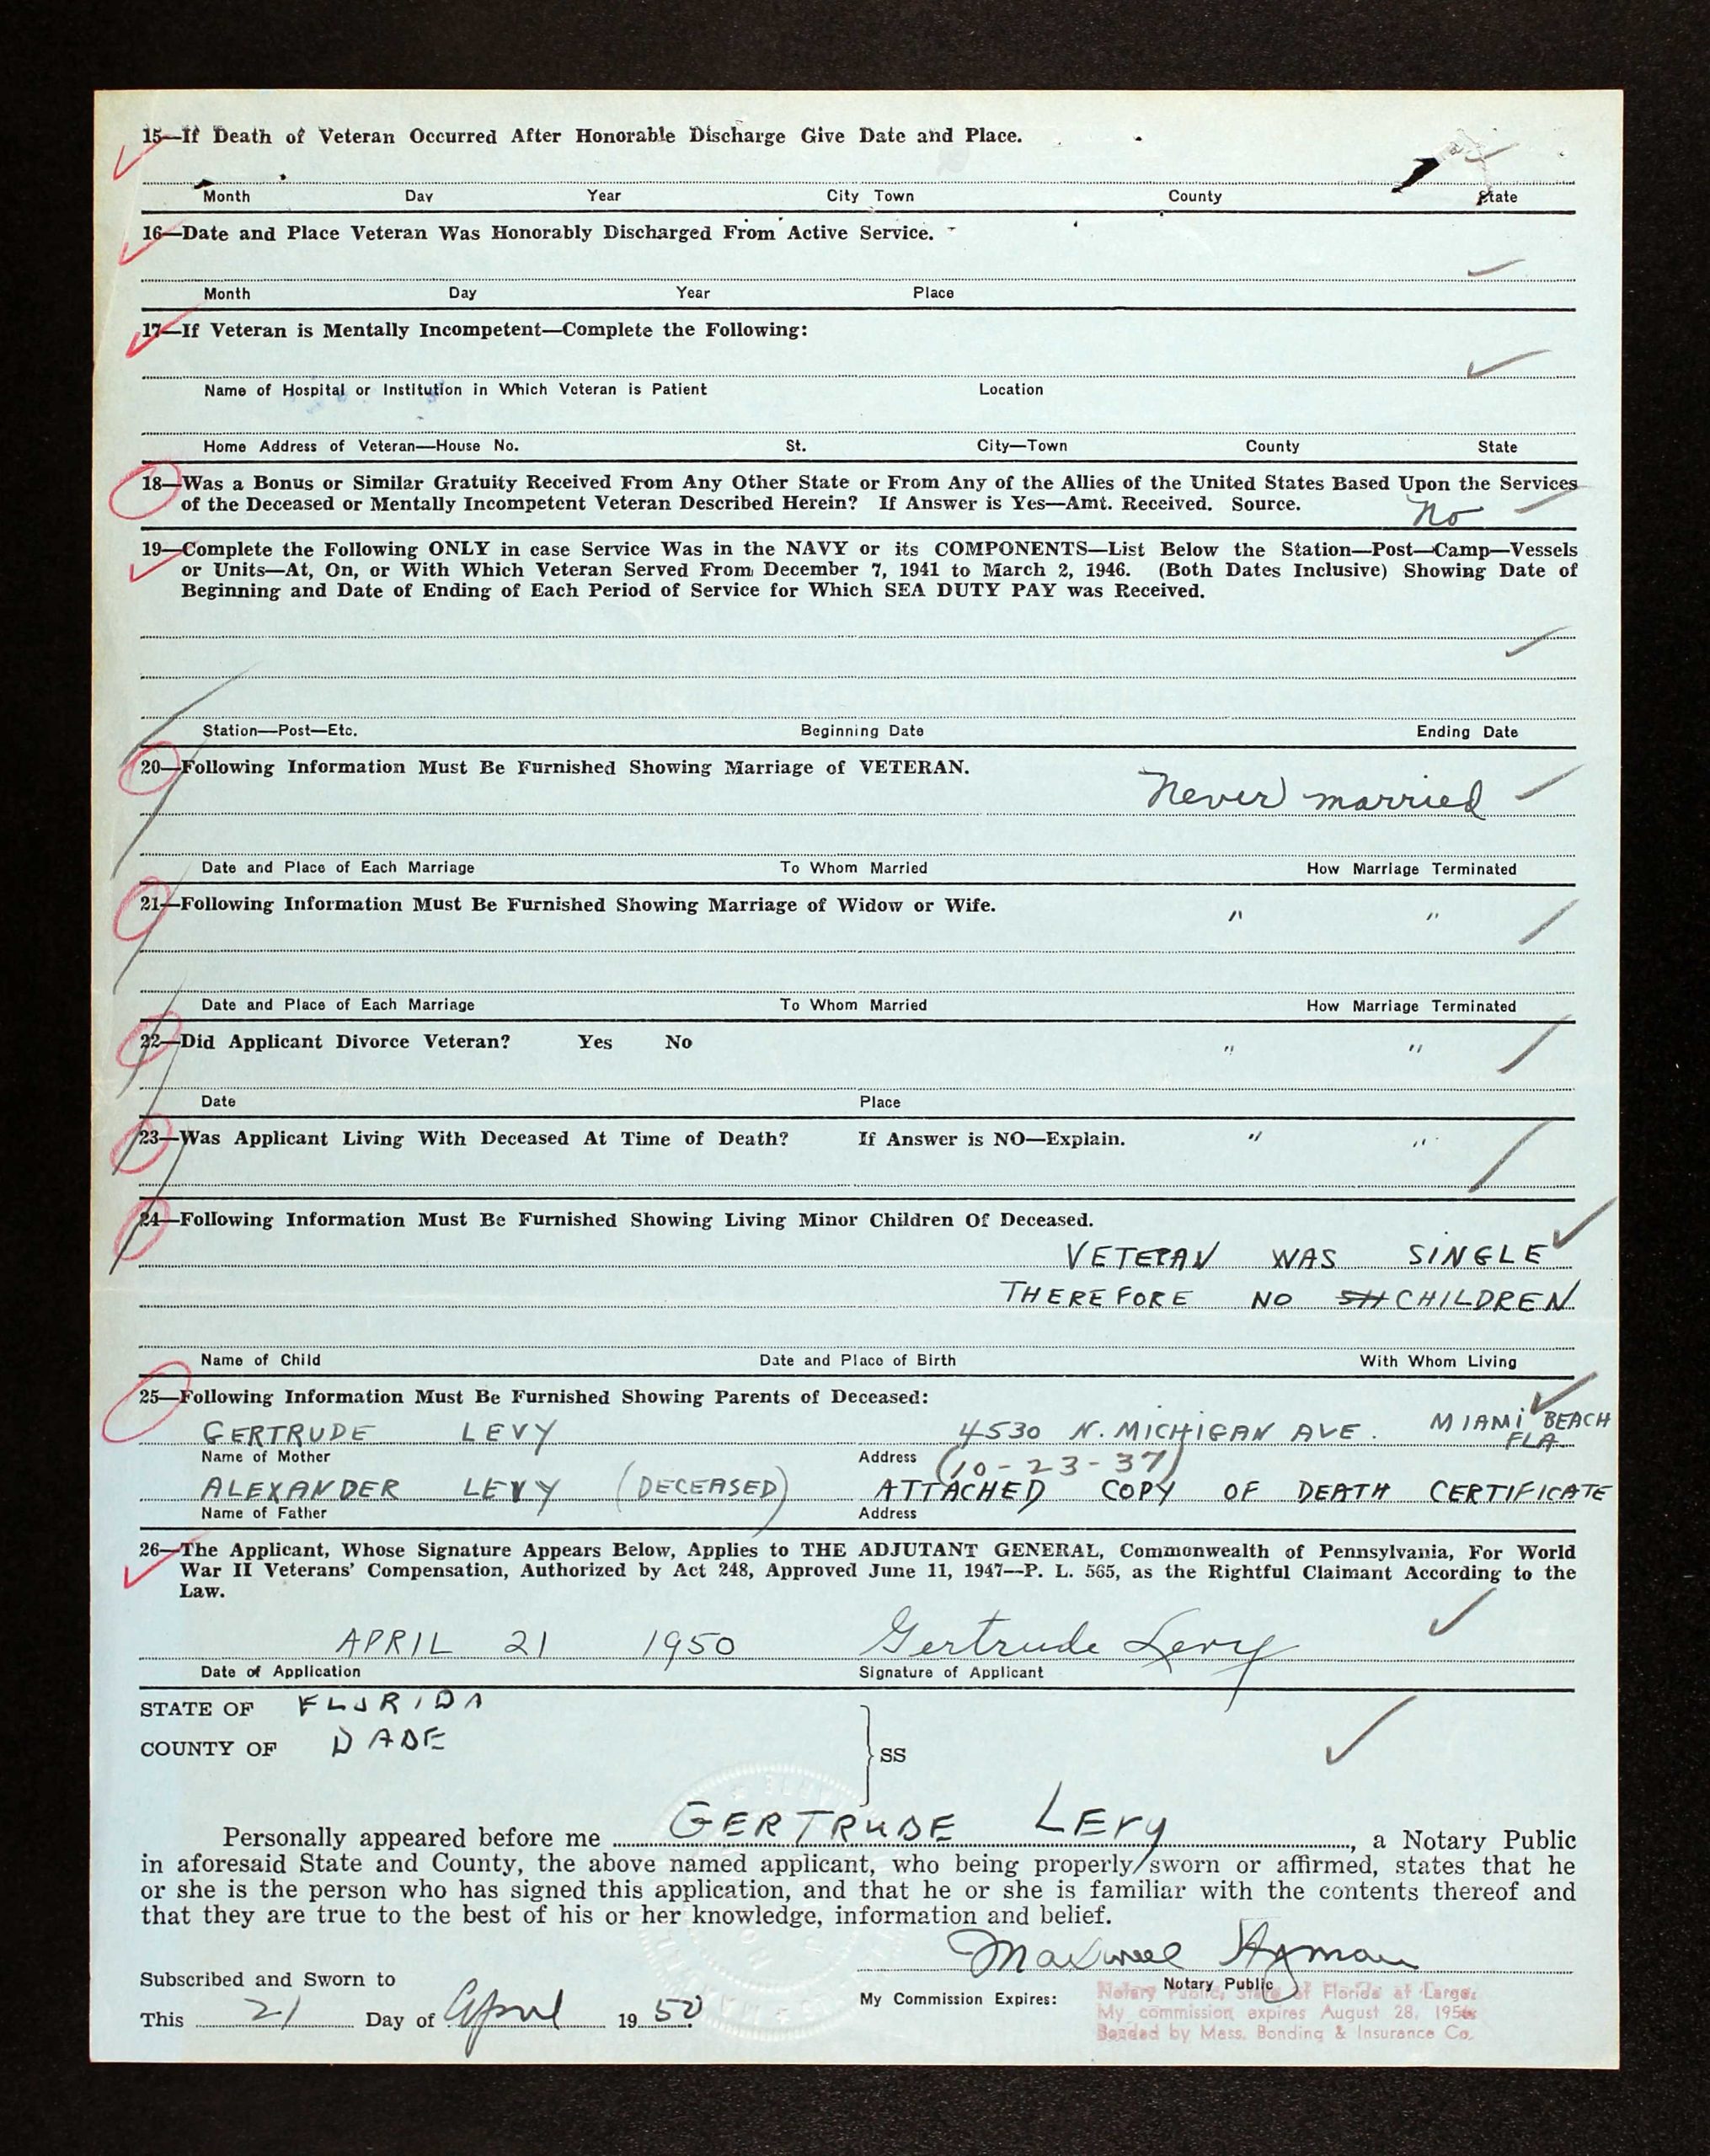 15—If Death of Veteran Occurred After Honorable Discharge Give Date and Place.
Month Day Year City Town County State
16—Date and Place Veteran Was Honorably Discharged From Active Service.
Month Day Year Place
17—If Veteran is Mentally Incompetent—Complete the Following:
Name of Hospital or Institution in Which Veteran is Patient Location
Home Address of Veteran—House No. St. City—Town County State
18—Was a Bonus or Similar Gratuity Received From Any Other State or From Any of the Allies of the United States Based Upon the Services
of the Deceased or Mentally Incompetent Veteran Described Herein? If Answer is Yes—Amt. Received. Source. No
19—Complete the Following ONLY in case Service Was in the NAVY or its COMPONENTS—List Below the Station—Post—Camp—Vessels
or Units—At, On, or With Which Veteran Served From December 7, 1941 to March 2, 1946. (Both Dates Inclusive) Showing Date of
Beginning and Date of Ending of Each Period of Service for Which SEA DUTY PAY was Received.
Station—Post—Etc. Beginning Date Ending Date
20—Following Information Must Be Furnished Showing Marriage of VETERAN.
Never married
Date and Place of Each Marriage To Whom Married How Marriage Terminated
21—Following Information Must Be Furnished Showing Marriage of Widow or Wife. " "
Date and Place of Each Marriage To Whom Married How Marriage Terminated
22—Did Applicant Divorce Veteran? Yes No " "
Date Place
23—Was Applicant Living With Deceased At Time of Death? If Answer is NO—Explain. " "
24—Following Information Must Be Furnished Showing Living Minor Children Of Deceased.
VETERAN WAS SINGLE
THEREFORE NO CHILDREN
Name of Child Date and Place of Birth With Whom Living
25—Following Information Must Be Furnished Showing Parents of Deceased:
GERTRUDE LEVY 4530 N. MICHIGAN AVE. MIAMI BEACH
FLA.
Name of Mother Address (10-23-37)
ALEXANDER LEVY (DECEASED) ATTACHED COPY OF DEATH CERTIFICATE
Name of Father Address
26—The Applicant, Whose Signature Appears Below, Applies to THE ADJUTANT GENERAL, Commonwealth of Pennsylvania, For World
War II Veterans' Compensation, Authorized by Act 248, Approved June 11, 1947—P. L. 565, as the Rightful Claimant According to the
Law.
APRIL 21 1950 Gertrude Levy
Date of Application Signature of Applicant
STATE OF FLORIDA
COUNTY OF DADE
SS
Personally appeared before me GERTRUDE LEVY, a Notary Public
in aforesaid State and County, the above named applicant, who being properly sworn or affirmed, states that he
or she is the person who has signed this application, and that he or she is familiar with the contents thereof and
that they are true to the best of his or her knowledge, information and belief.
Maxwell Hyman
Subscribed and Sworn to Notary Public
Notary Public, State of Florida at Large.
My Commission Expires: My commission expires August 28, 195
Bonded by Mass. Bonding & Insurance Co.
This 21 Day of April 19 50